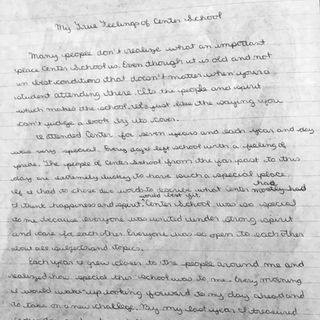 My True Feelings of Center School
Many people don't realize what an important
place Center School is. Even though it is old and not
in best conditions that doesn't matter when you're a
student attending there. It's the people and spirit
which makes the school. It's just like the saying you
can't judge a book by its cover.
I attended Center for seven years and each year and day
was very special. Every day I left school with a feeling of
pride. The people of Center School from the far past to this
day are extremely lucky to have such a special place
If I had to chose two words to describe what Center had
mostly had
I think happiness and spirit would best fit. Center School was so special
to me because everyone was united under strong spirit
and care for each other. Everyone was so open to each other
about all subjects and topics.
Each year I grew closer to the people around me and
realized how special this school was to me. Every morning
I would wake up looking forward to my day ahead and
to take on a new challege. By my last year I treasured